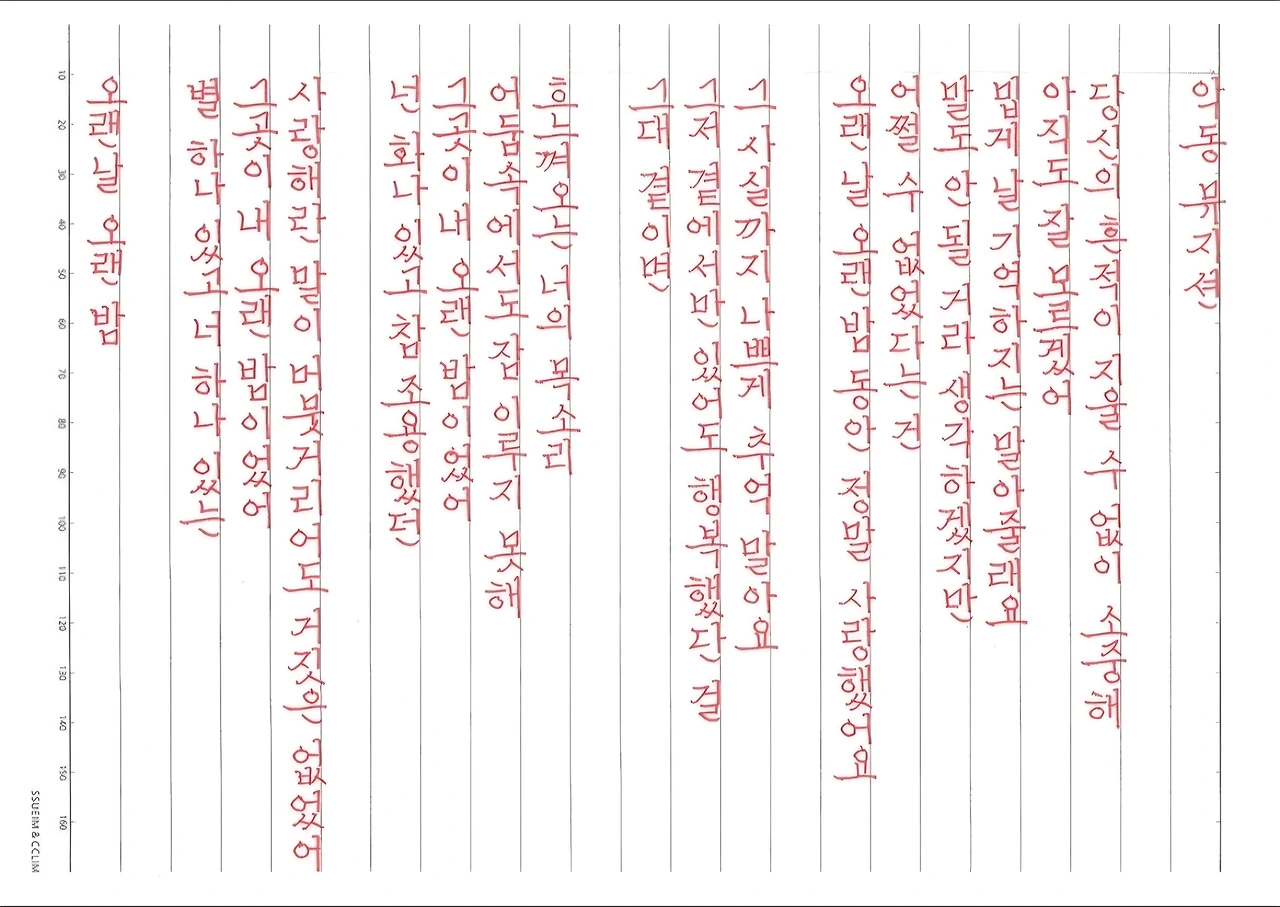 오랜날 오랜 밤
별 하나 있고 너 하나 있는
그곳이 내 오랜 밤이었어
사랑해란 말이 머뭇거리어도 거짓은 없었어
넌 화나 있고 참 조용했던
그곳이 내 오랜 밤이었어
어둠속에서도 잠 이루지 못해
흐느껴오는 너의 목소리
그대 곁이면
그저 곁에서만 있어도 행복했단 걸
그 사실까지 나쁘게 추억 말아요
오랜 날 오랜 밤 동안 정말 사랑했어요
어쩔 수 없었다는 건
말도 안될 거라 생각하겠지만
밉게 날 기억하지는 말아줄래요
아직도 잘 모르겠어
당신의 흔적이 지울 수 없이 소중해
악동 뮤지션
10 20 30 40 50 60 70 80 90 100 110 120 130 140 150 160
SSUEIM & CCLIM